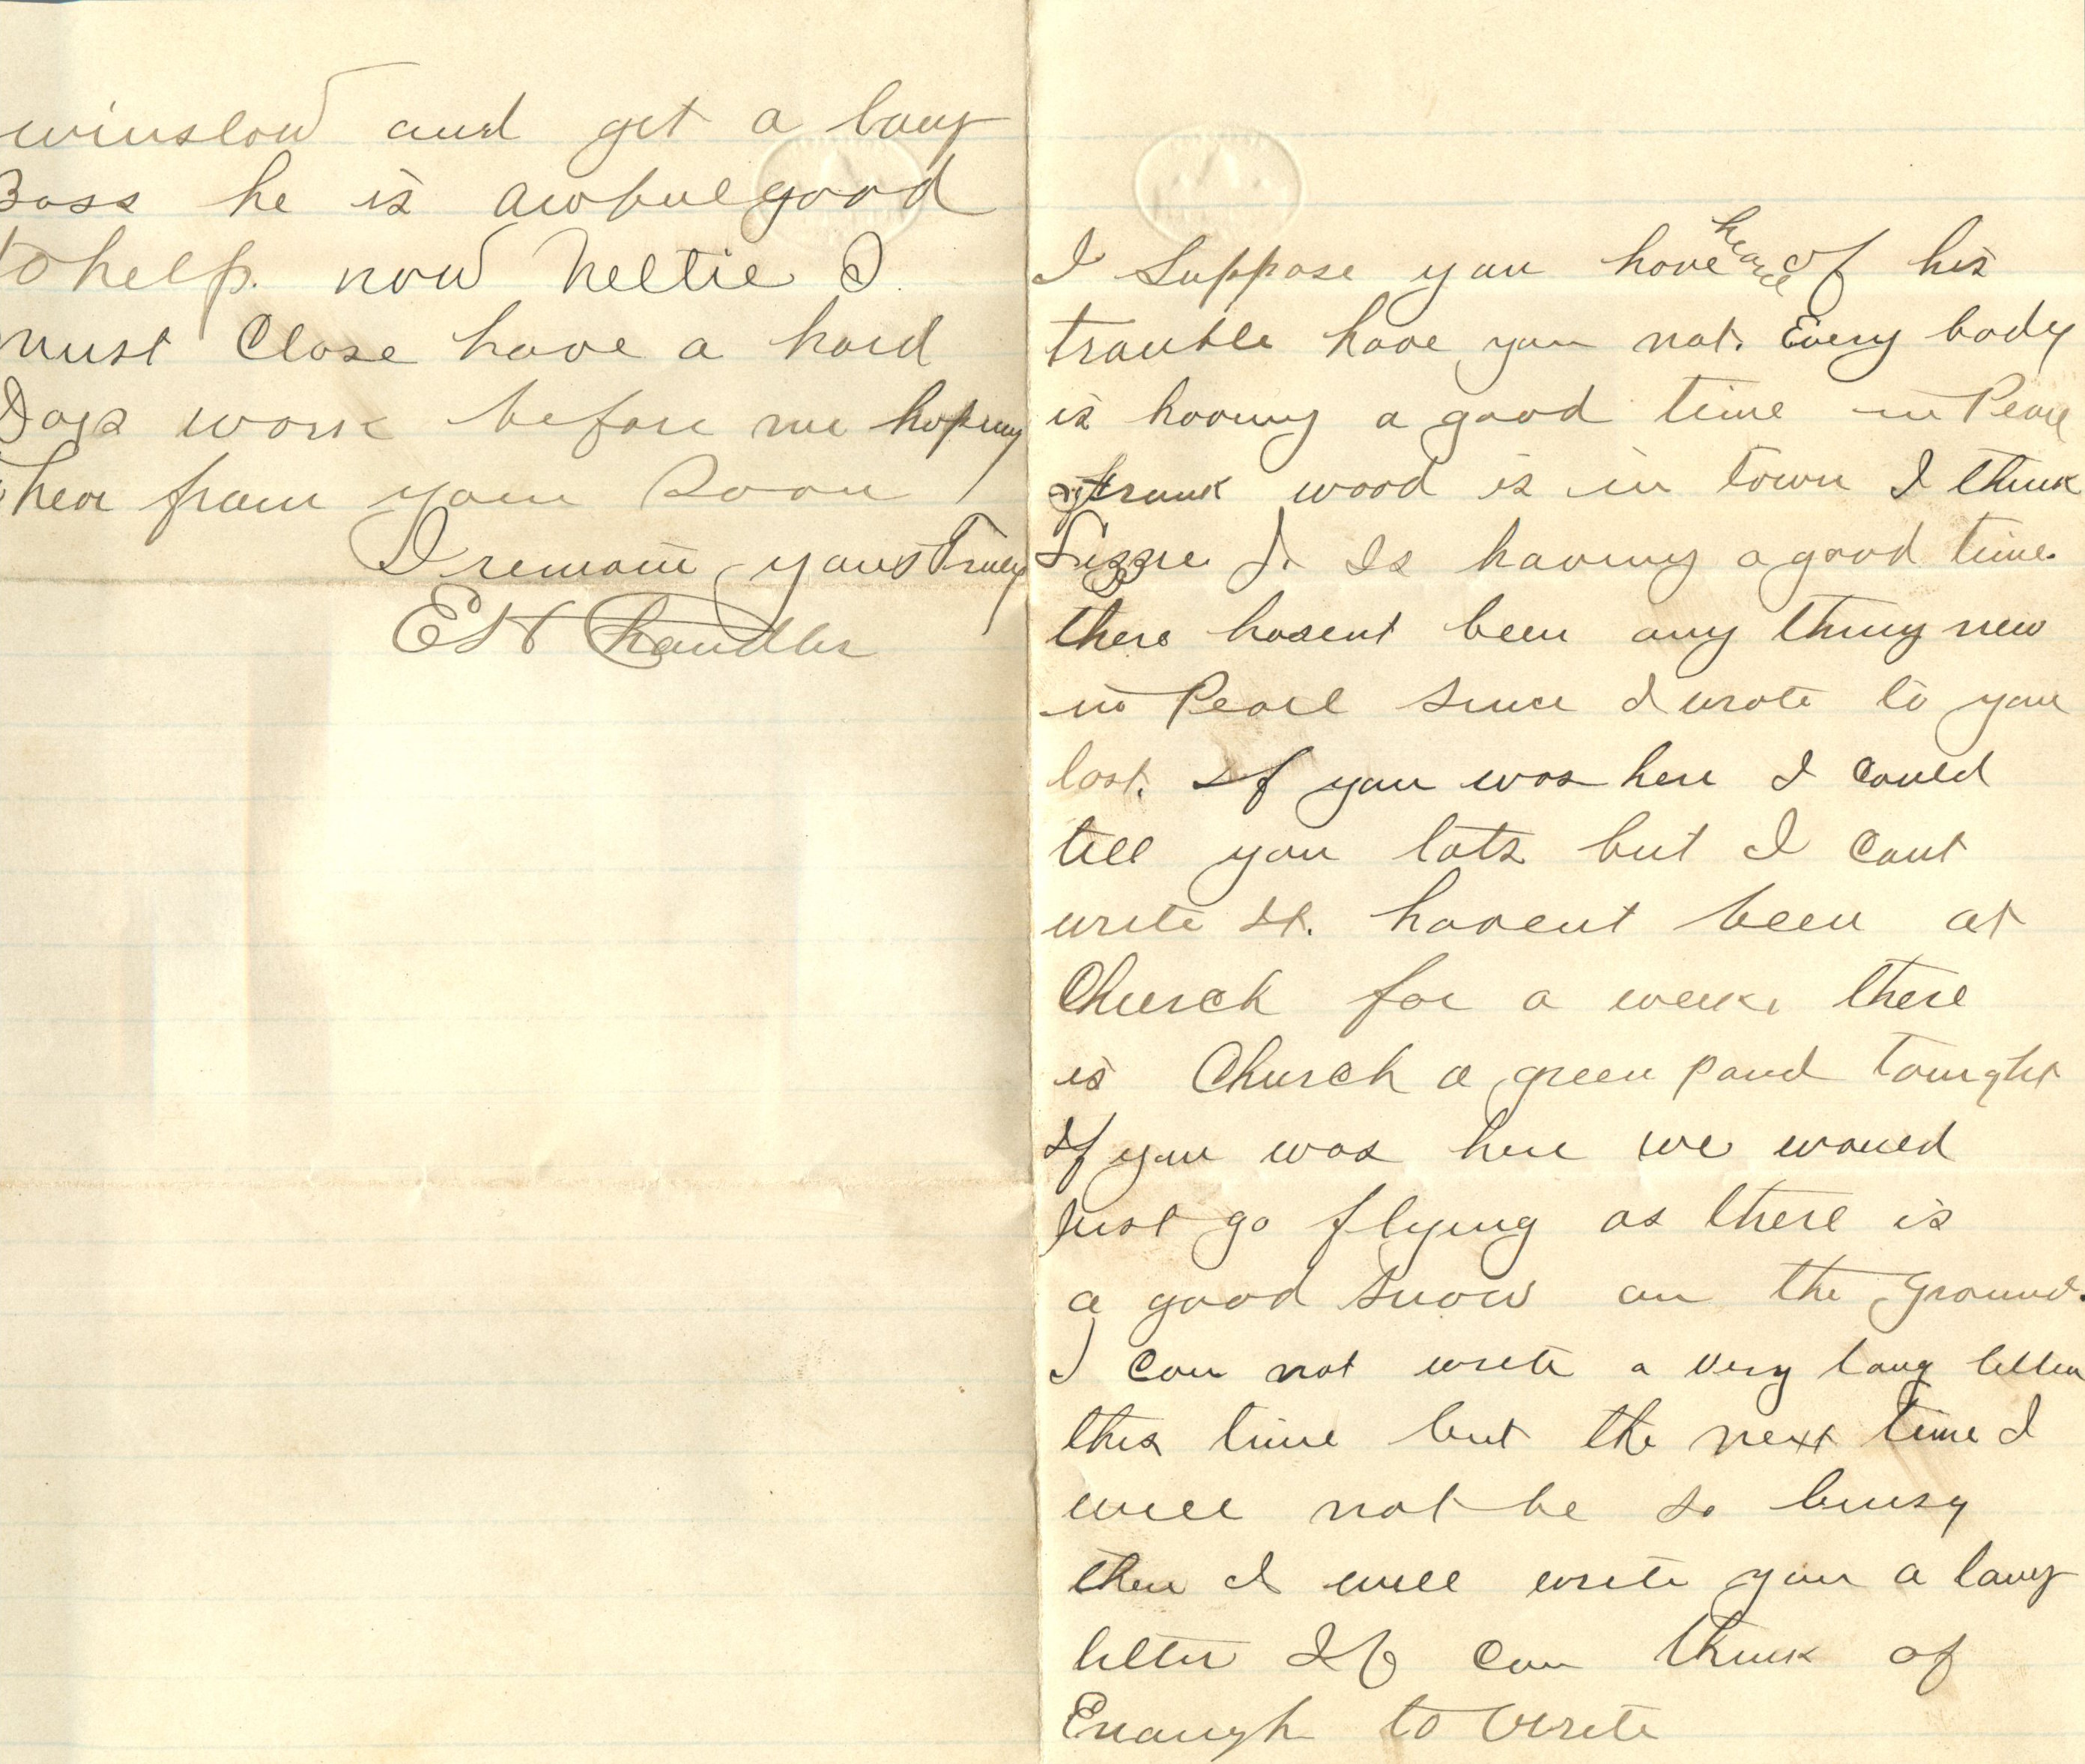 winslow and get a long
Boss he is awful good
to help. now Nettie I
must Close have a hard
Days work before me hoping
hear from you Soon
I remain yours Truly
E H Chandler
I Suppose you have heard of his
trouble have you not. Every body
is having a good time in Pearl
Frank wood is in town I think
Lizzie J. Is having a good time.
there hasent been any thing new
in Pearl Since I wrote to you
last. If you was here I Could
tell you lots but I Cant
write It. havent been at
Church for a week, there
is Church a green pond tonight
If you was here we would
Just go flying as there is
a good Snow on the Ground.
I Can not write a very long letter
this time but the next time I
will not be so buisy
then I will write you a long
letter If Can think of
Enough to Write